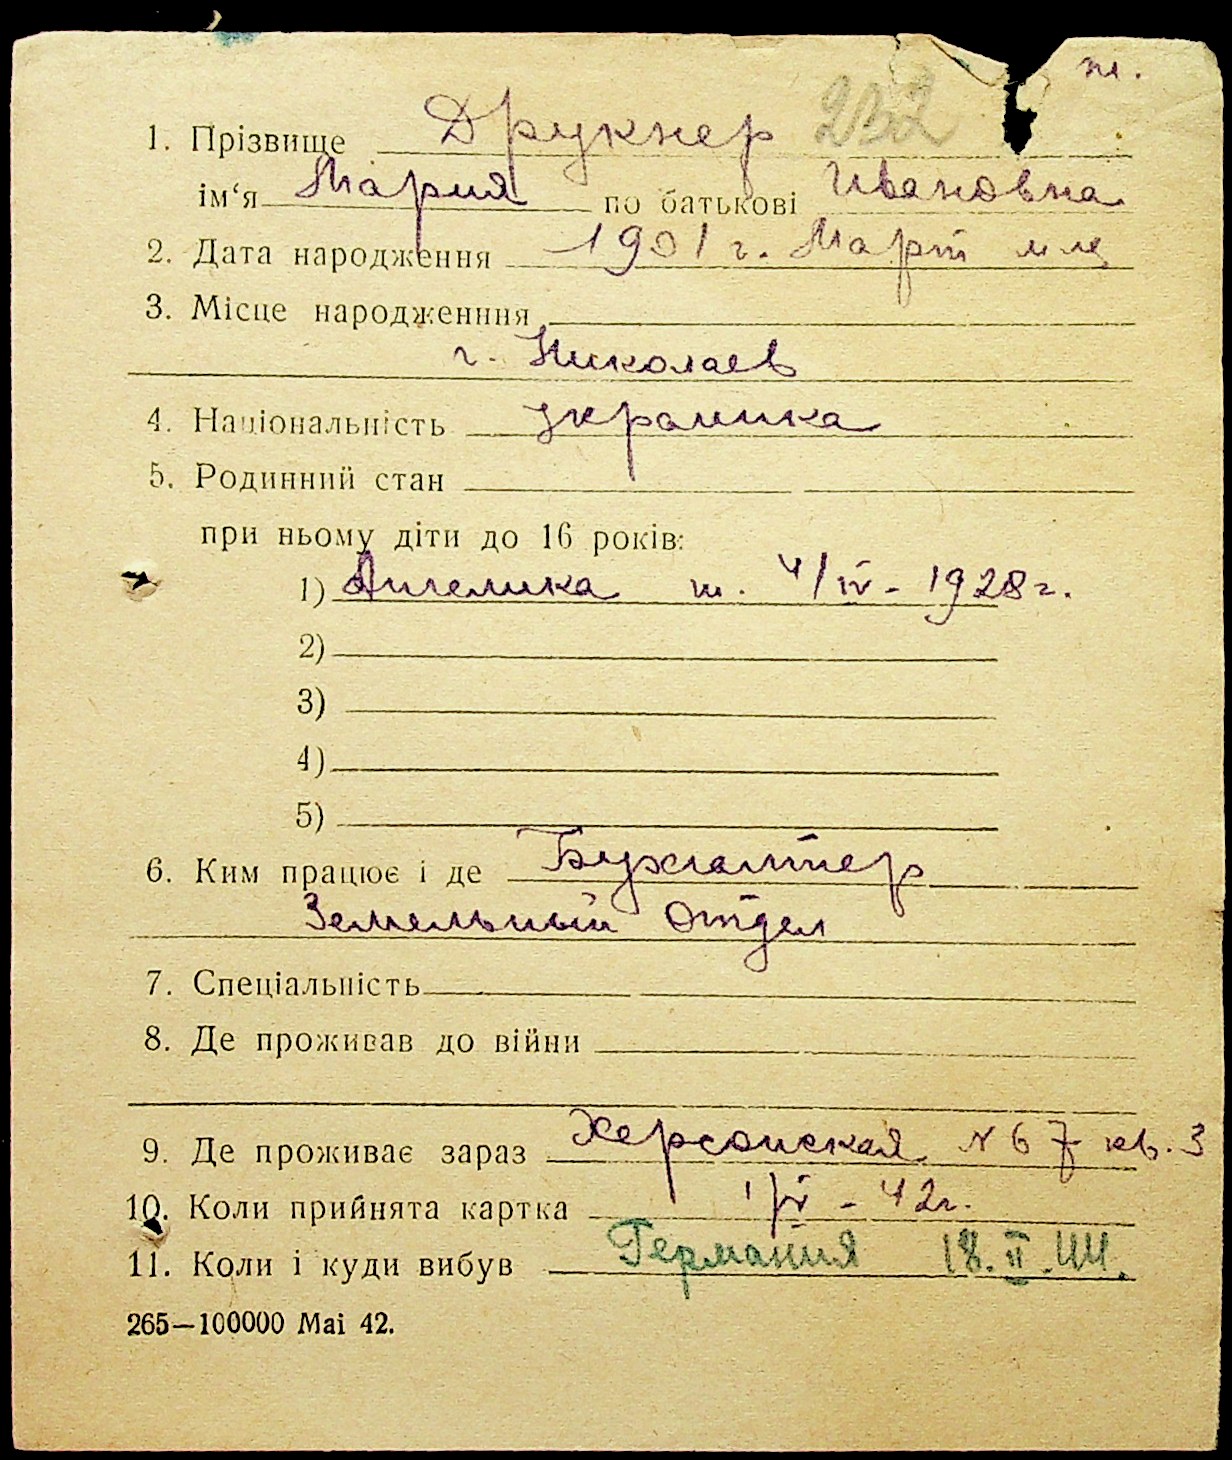 ж.
1. Прізвище Друкнер 232
ім‘я Мария по батькові Ивановна
2. Дата народження 1901 г. Март м-ц
3. Місце народженння
г. Николаев
4. Національність украинка
5. Родинний стан
при ньому діти до 16 років:
1) Ангелика ж. 4/IV - 1928 г.
2)
3)
4)
5)
6. Ким працює і де Бухгалтер
Земельный отдел
7. Спеціальність
8. Де проживав до війни
9. Де проживає зараз Херсонская N 67 кв. 3
10. Коли прийнята картка 1/IV - 42 г.
11. Коли і куди вибув Германия 18. II. 44.
265—100000 Mai 42.